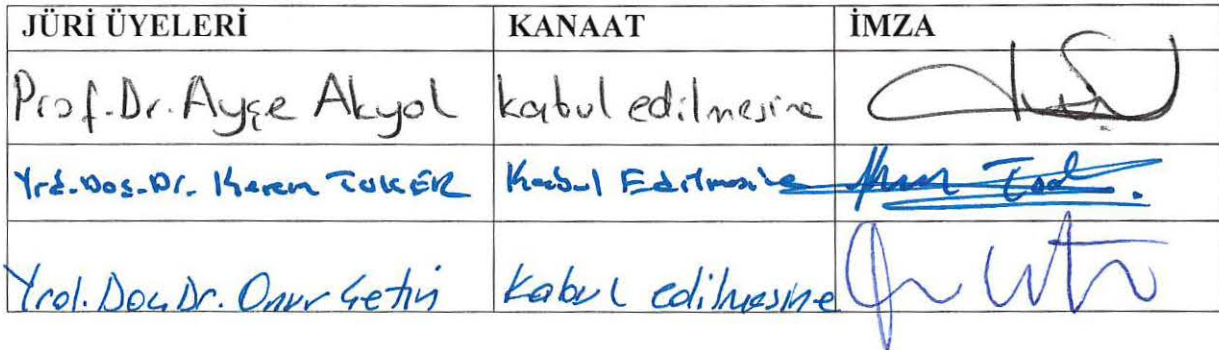 JÜRİ ÜYELERİ KANAAT İMZA
Prof. Dr. Ayşe Akyol kabul edilmesine
Yrd. Doç. Dr. Kerem TOKER Kabul Edilmesine
Yrd. Doç. Dr. Onur Çetin kabul edilmesine